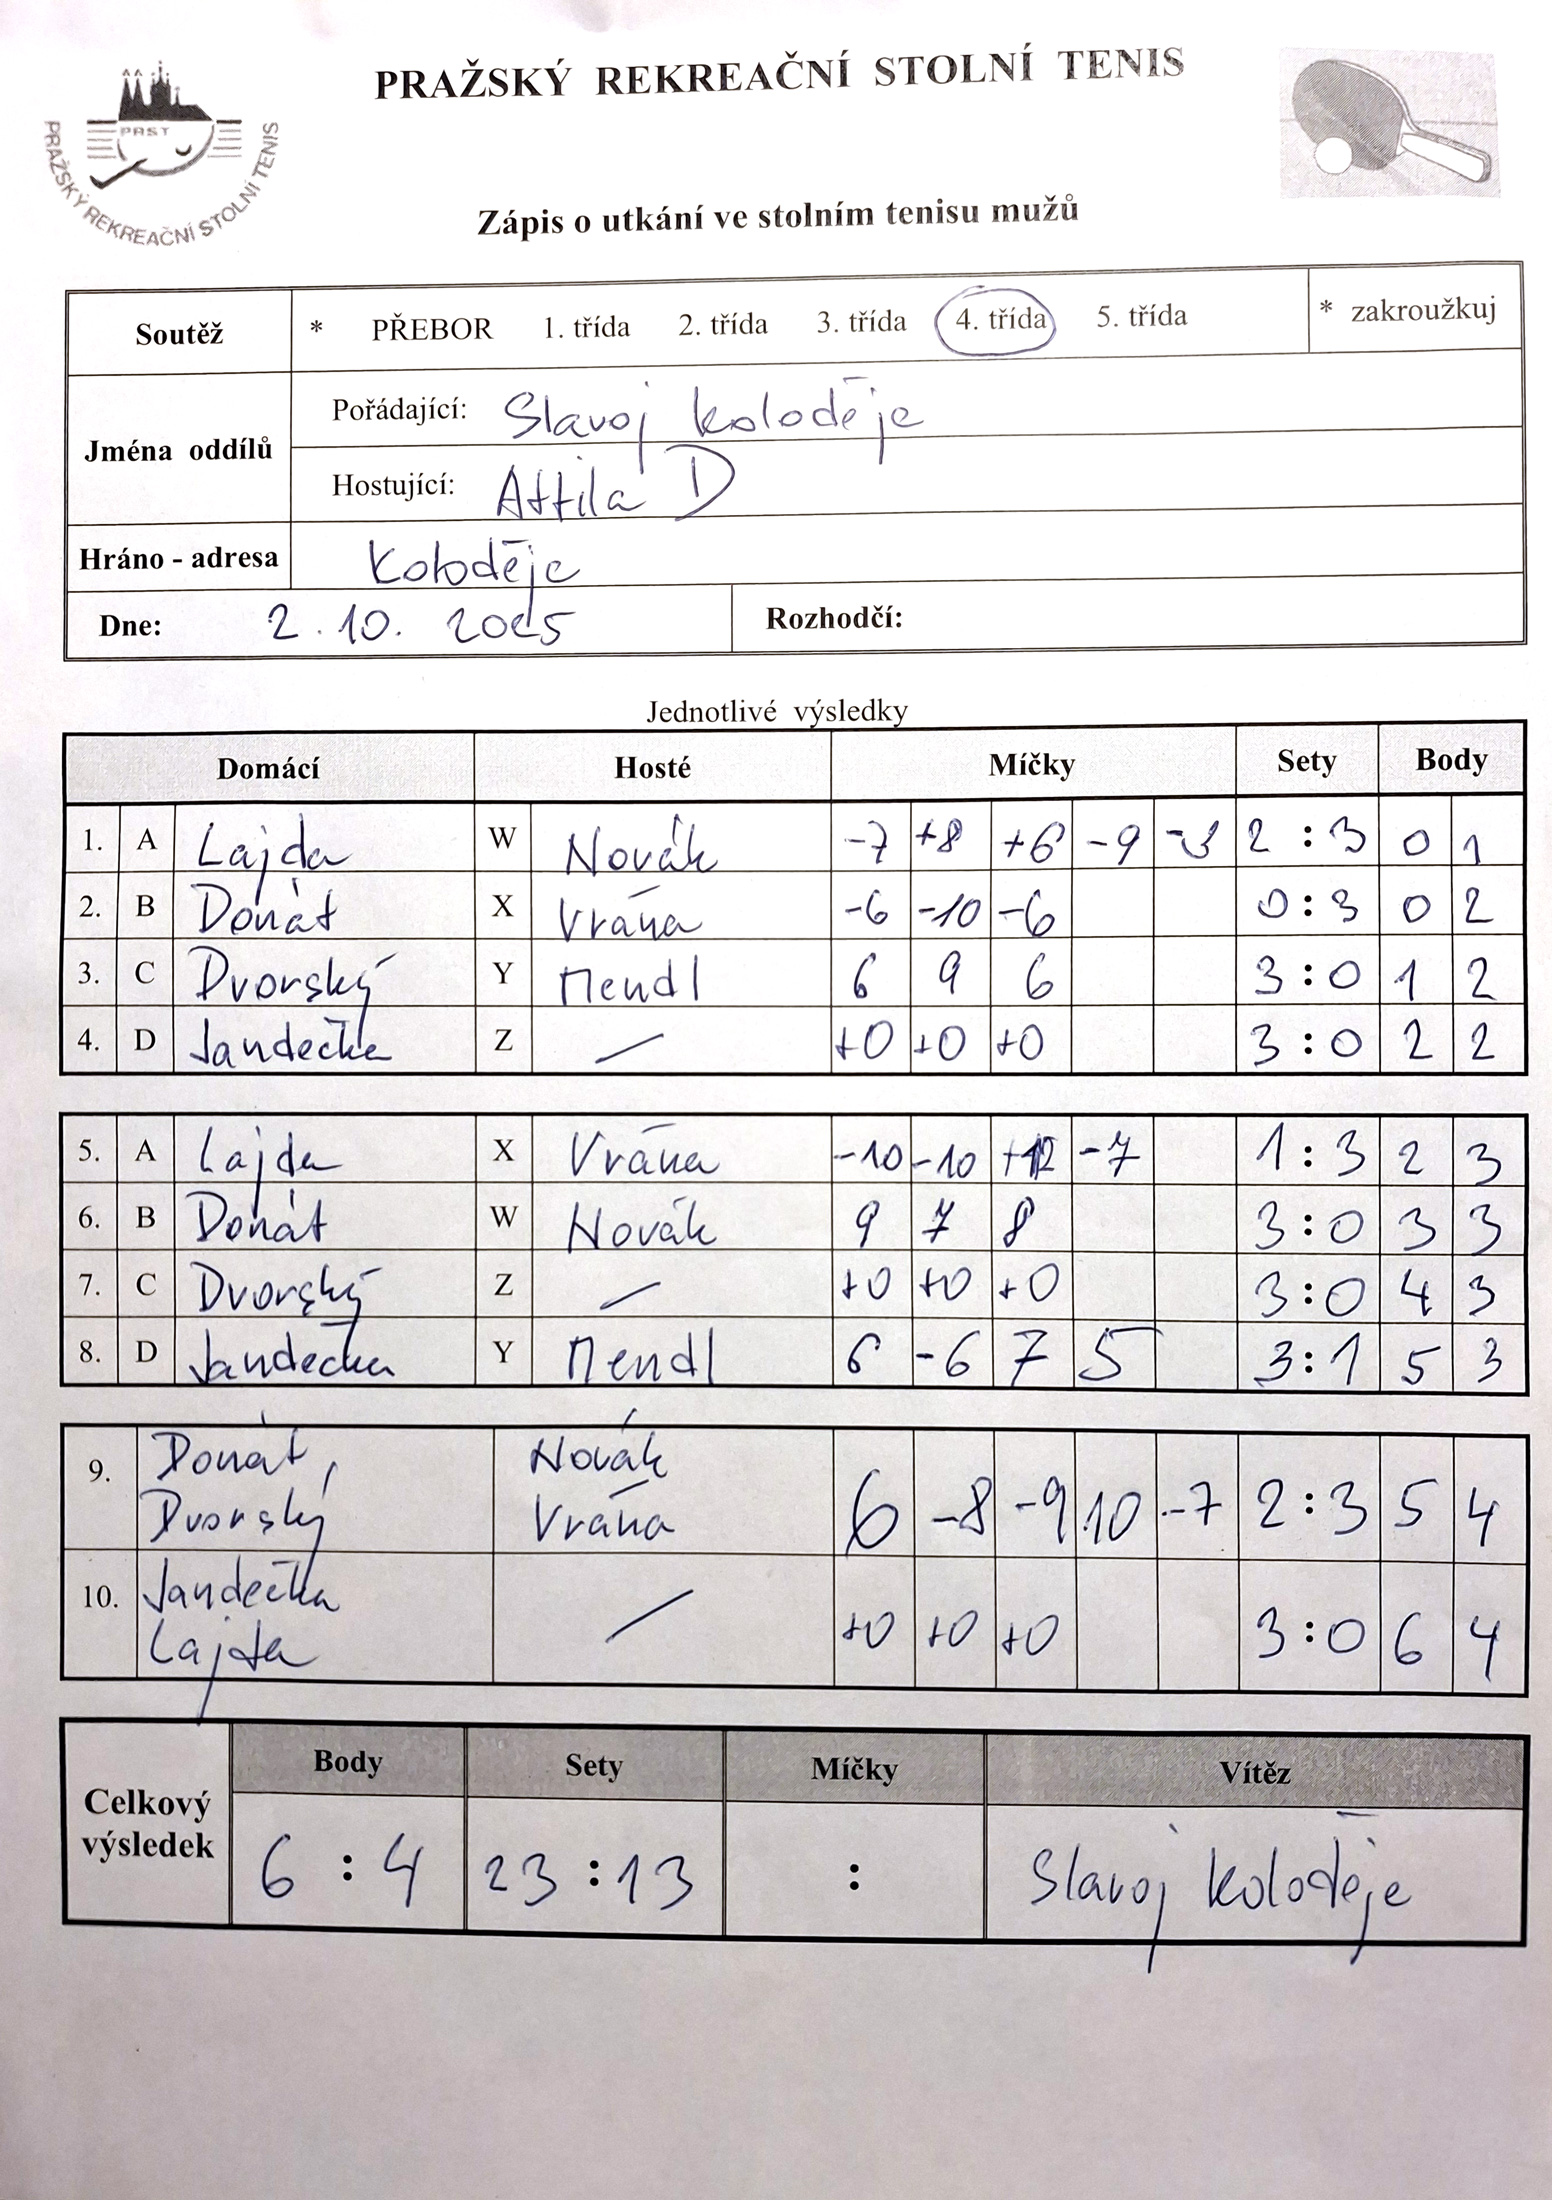 PRAŽSKÝ REKREAČNÍ STOLNÍ TENIS
PRST
PRAŽSKÝ REKREAČNÍ STOLNÍ TENIS
Zápis o utkání ve stolním tenisu mužů
Soutěž * PŘEBOR 1. třída 2. třída 3. třída 4. třída 5. třída * zakroužkuj
Jména oddílů
Pořádající: Slavoj Koloděje
Hostující: Attila D
Hráno - adresa Koloděje
Dne: 2. 10. 2025 Rozhodčí:
Jednotlivé výsledky
Domácí Hosté Míčky Sety Body
1. A Lajda W Novák -7 +8 +6 -9 -3 2 : 3 0 1
2. B Donát X Vrána -6 -10 -6 0 : 3 0 2
3. C Dvorský Y Mendl 6 9 6 3 : 0 1 2
4. D Jandečka Z — +0 +0 +0 3 : 0 2 2
5. A Lajda X Vrána -10 -10 +12 -7 1 : 3 2 3
6. B Donát W Novák 9 7 8 3 : 0 3 3
7. C Dvorský Z — +0 +0 +0 3 : 0 4 3
8. D Jandečka Y Mendl 6 -6 7 5 3 : 1 5 3
Donát, Novák
9. 6 -8 -9 10 -7 2 : 3 5 4
Dvorský Vrána
Jandečka
10. — +0 +0 +0 3 : 0 6 4
Lajda
Celkový výsledek
Body Sety Míčky Vítěz
6 : 4 23 : 13 : Slavoj Koloděje